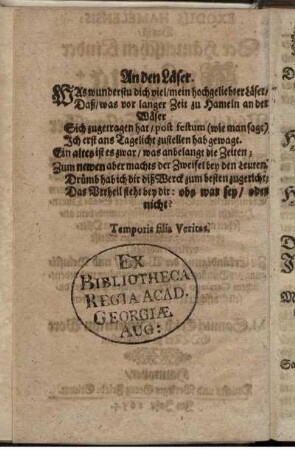 An den Läser.
WAs wunderstu dich viel/ mein hochgeliebter Läser/
Daß/ was vor langer Zeit zu Hameln an der
Wäser
Sich zugetragen hat/ post festum (wie man sagt)
Ich erst ans Tagelicht zustellen hab gewagt.
Ein altes ist es zwar/ was anbelangt die Zeiten;
Zum newen aber machts der Zweifel bey den Leuten.
Drümb hab ich dir diß Werck zum besten zugericht;
Das Vrtheil steht bey dir: obs war sey/ oder
nicht?
Temporis filia Veritas.
EX
BIBLIOTHECA
REGIA ACAD.
GEORGIÆ
AUG: